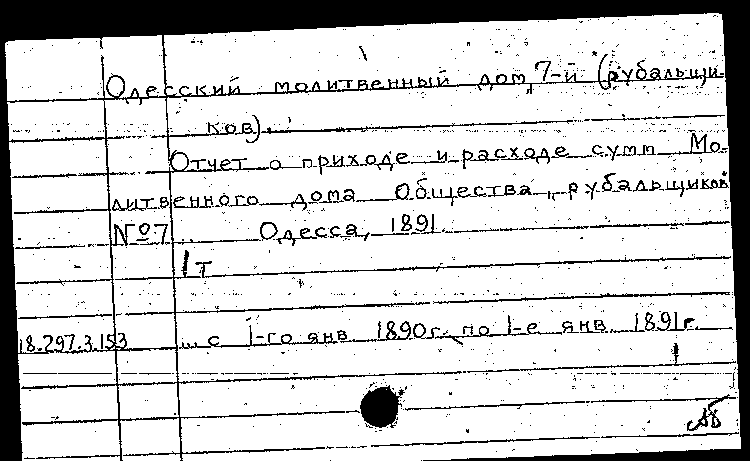 Одесский молитвенный дом, 7-й (рубальщи-
ков).
Отчет о приходе и расходе сумм Мо-
литвенного дома Общества „рубальщиков"
№7 . . Одесса, 1891.
1т
18.297.3.153 ... с 1-го янв. 1890г. по 1-е янв. 1891г.
АБ